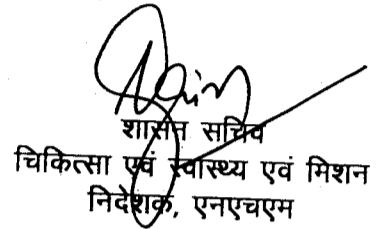 शासन सचिव
चिकित्सा एवं स्वास्थ्य एवं मिशन
निदेशक, एनएचएम